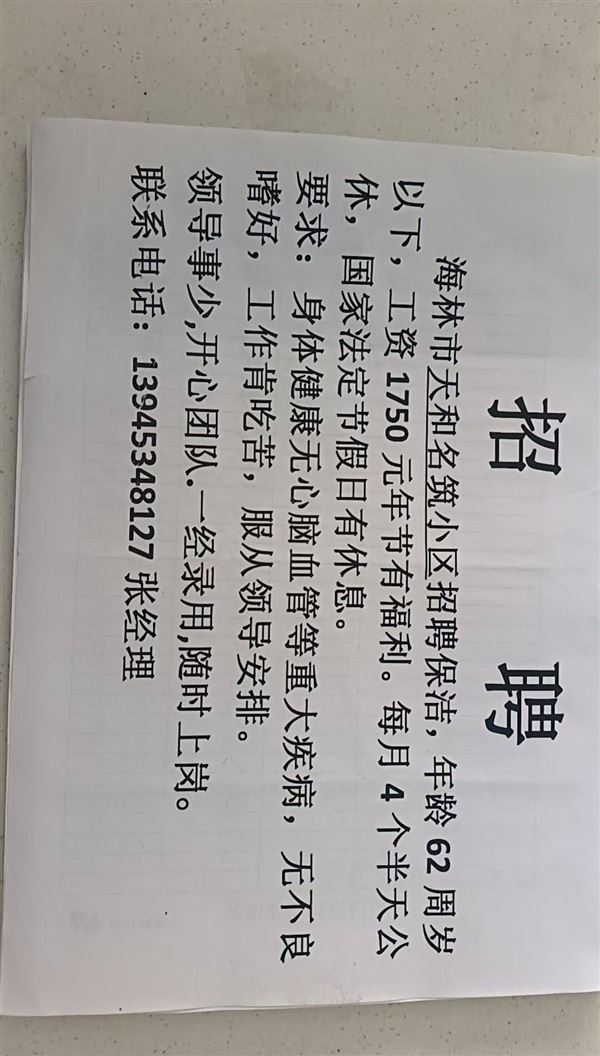 招 聘
海林市天和名筑小区招聘保洁，年龄 62 周岁
以下，工资 1750 元年节有福利。每月 4 个半天公
休，国家法定节假日有休息。
要求：身体健康无心脑血管等重大疾病，无不良
嗜好，工作肯吃苦，服从领导安排。
领导事少,开心团队.一经录用,随时上岗。
联系电话：13945348127 张经理